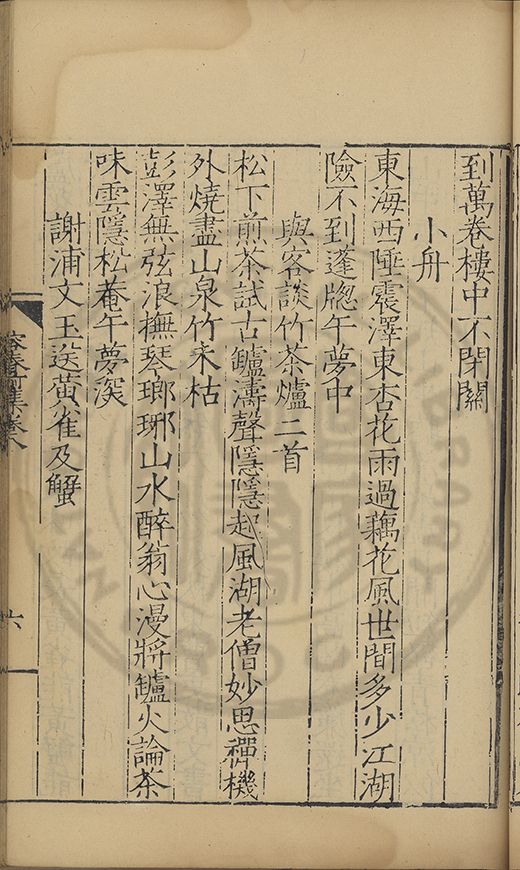 到萬卷樓中不閉關
小舟
東海西陲震澤東杏花雨過藕花風世間多少江湖
險不到蓬牕午夢中
與客談竹茶爐二首
松下煎茶試古鑪濤聲隱隱起風湖老僧妙思禪機
外燒盡山泉竹未枯
彭澤無弦浪撫琴瑯琊山水醉翁心漫將鑪火論茶
味雲隱松菴午夢深
謝浦文玉送黄雀及蟹
容春前集卷八
六